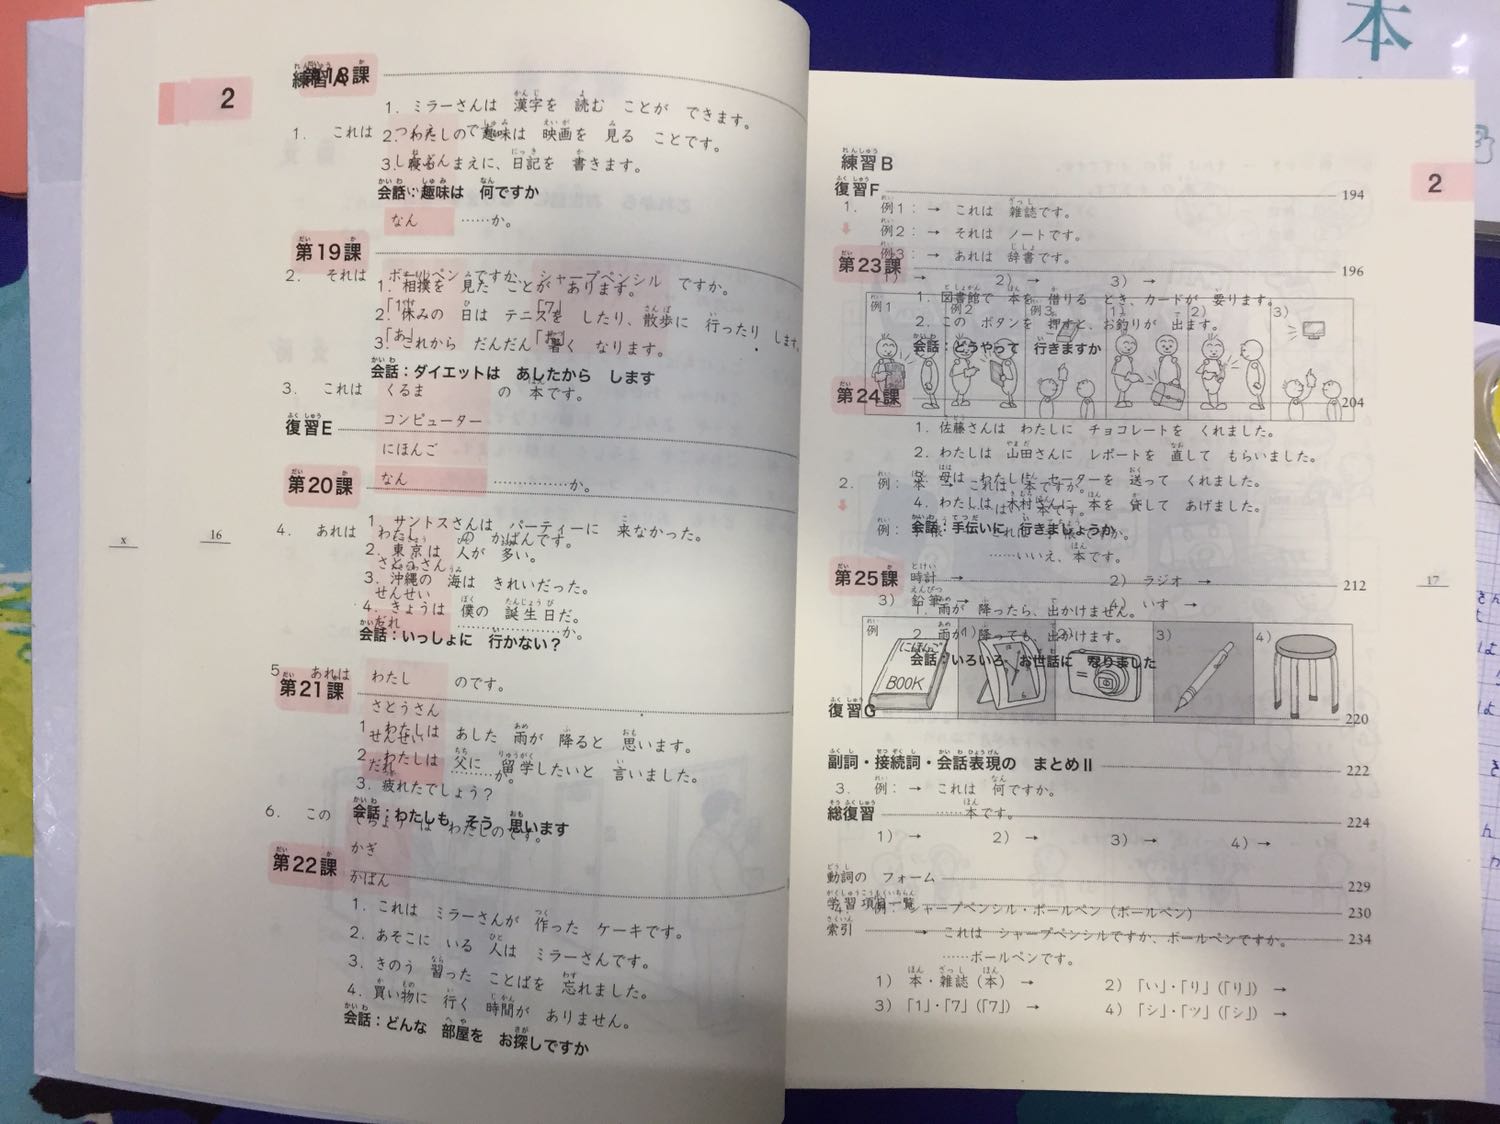 2
練習A
第18課
1. ミラーさんは 漢字を 読む ことが できます。
2. わたしの 趣味は 映画を 見る ことです。
3. 寝る まえに、日記を 書きます。
会話：趣味は 何ですか
1. これは
なん ……か。
第19課
2. それは ボールペンですか、シャープペンシル ですか。
1. 相撲を 見た ことが あります。
「1」 「7」
2. 休みの 日は テニスを したり、散歩に 行ったり します。
「あ」 「お」
3. これから だんだん 暑く なります。
会話：ダイエットは あしたから します
3. これは くるま の 本です。
コンピューター
復習E
にほんご
なん ……………か。
第20課
1. サントスさんは パーティーに 来なかった。
4. あれは わたし の かばんです。
2. 東京は 人が 多い。
さとうさん
3. 沖縄の 海は きれいだった。
せんせい
4. きょうは 僕の 誕生日だ。
だれ ………………か。
会話：いっしょに 行かない？
5. あれは わたし のです。
第21課
さとうさん
1. わたしは あした 雨が 降ると 思います。
せんせい
2. わたしは 父に 留学したいと 言いました。
だれ ………か。
3. 疲れたでしょう？
会話：わたしも そう 思います
6. この は わたしのです。
かぎ
第22課
かばん
1. これは ミラーさんが 作った ケーキです。
2. あそこに いる 人は ミラーさんです。
3. きのう 習った ことばを 忘れました。
4. 買い物に 行く 時間が ありません。
会話：どんな 部屋を お探しですか
x
16
2
練習B
復習F 194
1. 例1： → これは 雑誌です。
例2： → それは ノートです。
例3： → あれは 辞書です。
第23課 196
1) → 2) → 3) →
1. 図書館で 本を 借りる とき、カードが 要ります。
例1 例2 例3 1) 2) 3)
2. この ボタンを 押すと、お釣りが 出ます。
会話：どうやって 行きますか
第24課 204
1. 佐藤さんは わたしに チョコレートを くれました。
2. わたしは 山田さんに レポートを 直して もらいました。
3. 母は わたしに セーターを 送って くれました。
2. 例：本 → これは 本ですか。
4. わたしは 木村さんに 本を 貸して あげました。
……はい、本です。
会話：手伝いに 行きましょうか
例：手帳 → これは 手帳ですか。
……いいえ、本です。
第25課 212
1) 時計 → 2) ラジオ →
3) 鉛筆 → 4) いす →
1. 雨が 降ったら、出かけません。
2. 雨が 降っても、出かけます。
例 1) 2) 3) 4)
にほんご
BOOK
会話：いろいろ お世話に なりました
復習G 220
副詞・接続詞・会話表現の まとめⅡ 222
3. 例： → これは 何ですか。
……本です。
総復習 224
1) → 2) → 3) → 4) →
動詞の フォーム 229
学習項目一覧 230
4. 例：シャープペンシル・ボールペン（ボールペン）
索引 234
→ これは シャープペンシルですか、ボールペンですか。
……ボールペンです。
1) 本・雑誌（本） → 2)「い」・「り」（「り」） →
3)「1」・「7」（「7」） → 4)「シ」・「ツ」（「シ」） →
17
本